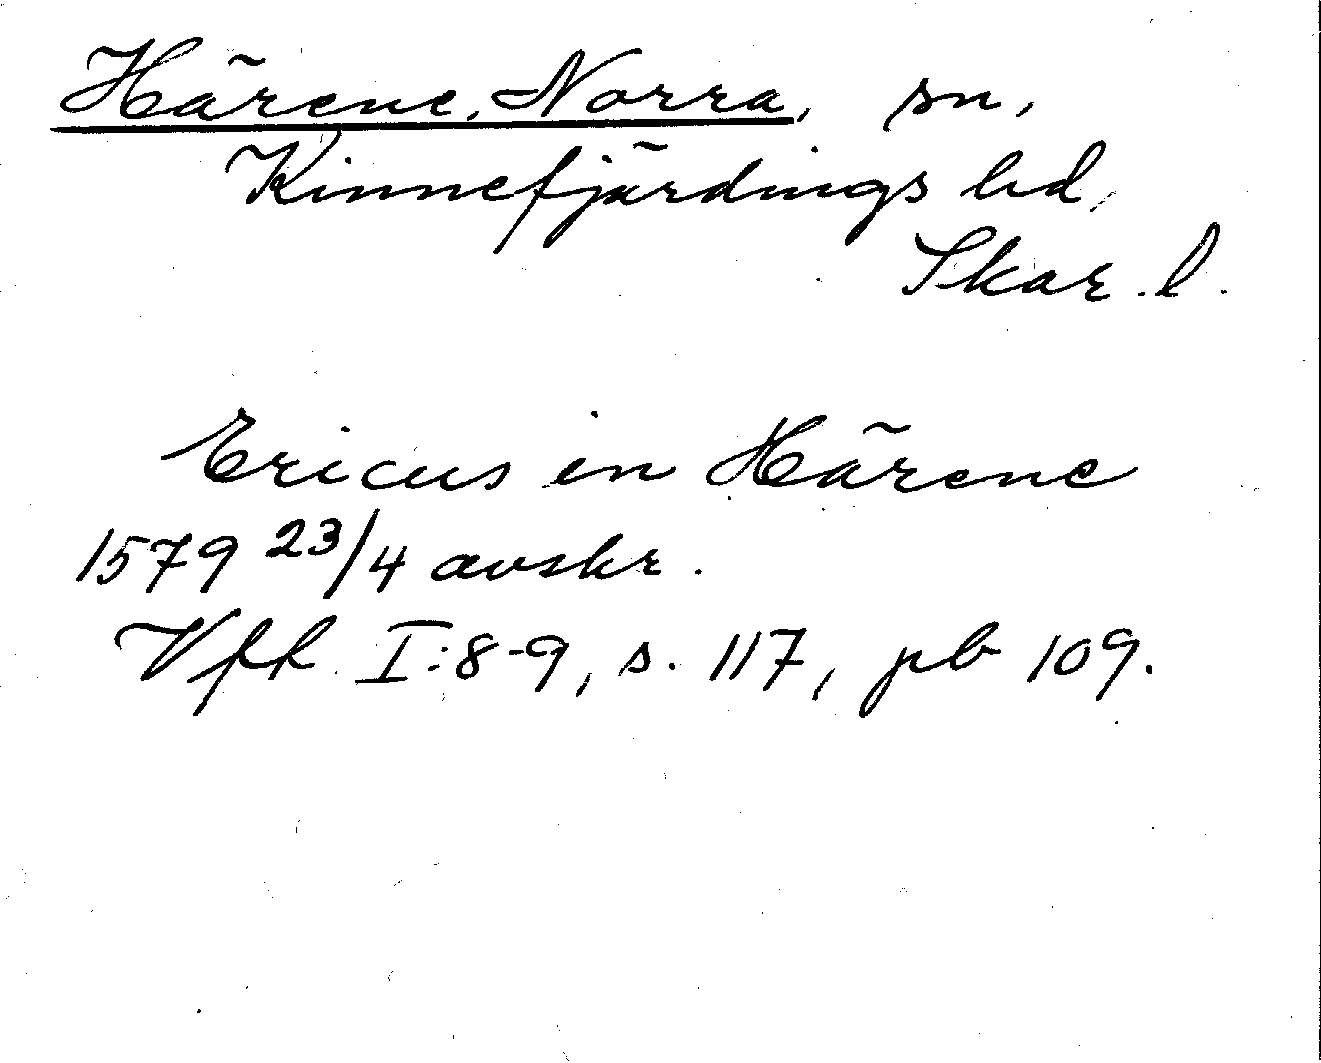 Härene, Norra, sn,
Kinnefjärdings hd,
Skar. l.
Ericus in Härene
1579 23/4 avskr.
Vfh I:8-9, s. 117, pb 109.